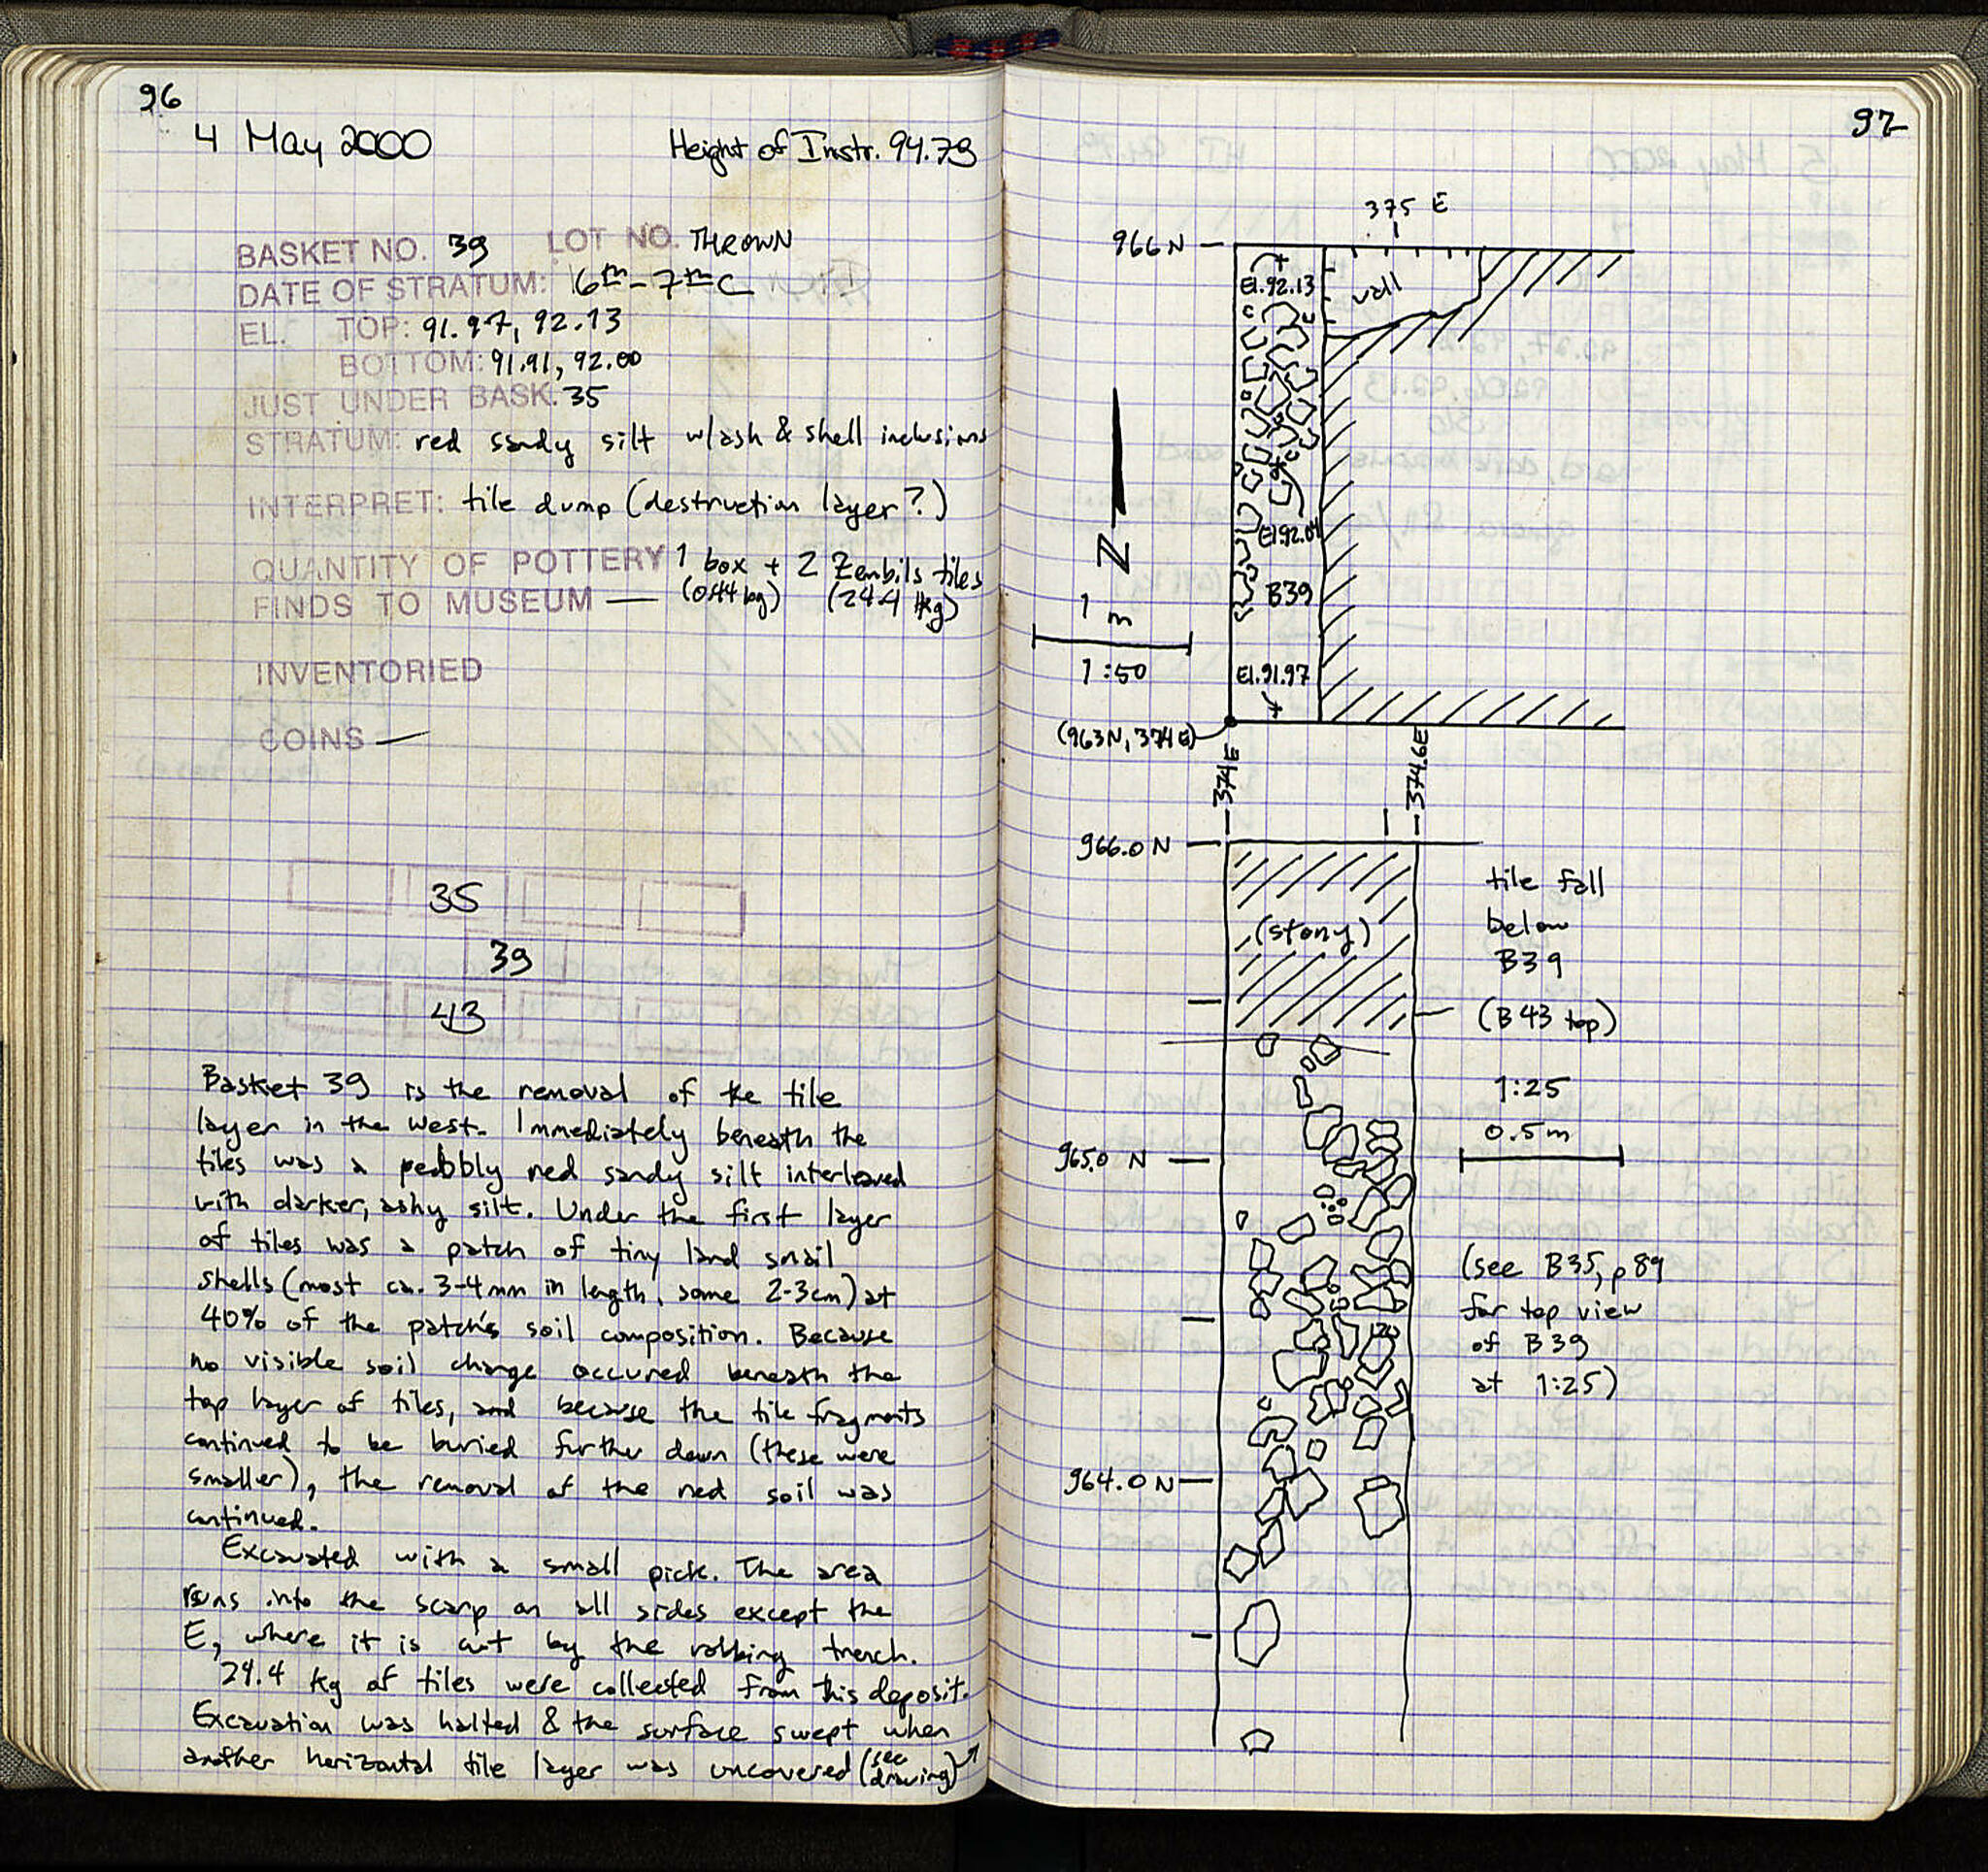 96
4 May 2000 Height of Instr. 94.79
BASKET NO. 39 LOT NO. THROWN
DATE OF STRATUM: 6th-7th C
EL. TOP: 91.97, 92.13
BOTTOM: 91.91, 92.00
JUST UNDER BASK. 35
STRATUM: red sandy silt w/ash & shell inclusions
INTERPRET: tile dump (destruction layer?)
QUANTITY OF POTTERY 1 box + 2 Zembils tiles
FINDS TO MUSEUM — (0.44 kg) (24.4 kg)
INVENTORIED
COINS —
35
39
43
Basket 39 is the removal of the tile
layer in the west. Immediately beneath the
tiles was a pebbly red sandy silt interleaved
with darker, ashy silt. Under the first layer
of tiles was a patch of tiny land snail
shells (most ca. 3-4mm in length, some 2-3cm) at
40% of the patch's soil composition. Because
no visible soil change occured beneath the
top layer of tiles, and because the tile fragments
continued to be buried further down (these were
smaller), the removal of the red soil was
continued.
Excavated with a small pick. The area
runs into the scarp on all sides except the
E, where it is cut by the robbing trench.
24.4 kg of tiles were collected from this deposit.
Excavation was halted & the surface swept when
another horizontal tile layer was uncovered (see
drawing)
97
375 E
966 N
El. 92.13
wall
El 92.04
N
B39
1 m
1:50
El. 91.97
(963N, 374E)
374E
374.6E
966.0 N
(stony)
tile fall
below
B39
(B43 top)
1:25
0.5m
965.0 N
(see B35, p89
for top view
of B39
at 1:25)
964.0 N